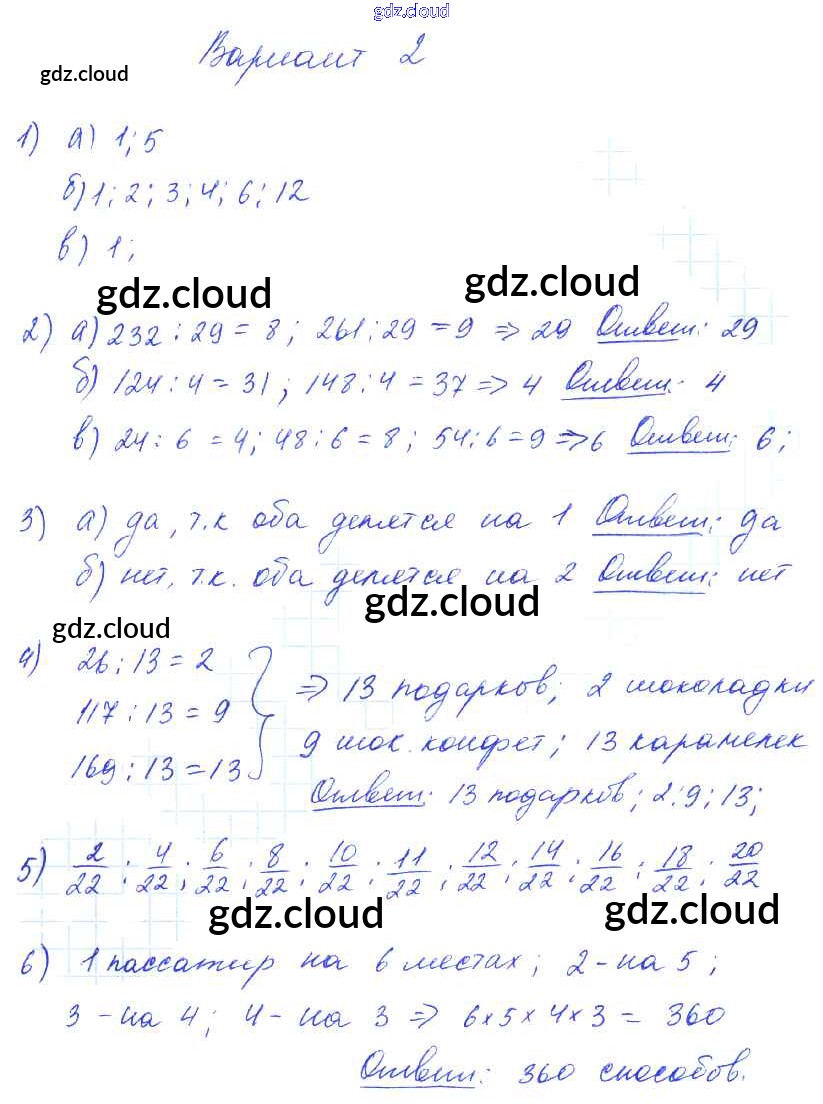 gdz.cloud
Вариант 2
gdz.cloud
1) а) 1; 5
б) 1; 2; 3; 4; 6; 12
в) 1;
gdz.cloud gdz.cloud
2) а) 232 : 29 = 8; 261 : 29 = 9 => 29 Ответ: 29
б) 124 : 4 = 31; 148 : 4 = 37 => 4 Ответ: 4
в) 24 : 6 = 4; 48 : 6 = 8; 54 : 6 = 9 => 6 Ответ: 6;
3) а) да, т.к оба делятся на 1 Ответ: да
б) нет, т.к. оба делятся на 2 Ответ: нет
gdz.cloud
gdz.cloud
4) 26 : 13 = 2
117 : 13 = 9
169 : 13 = 13
=> 13 подарков; 2 шоколадки
9 шок. конфет; 13 карамелек
Ответ: 13 подарков; 2; 9; 13;
5) 2/22; 4/22; 6/22; 8/22; 10/22; 11/22; 12/22; 14/22; 16/22; 18/22; 20/22
gdz.cloud gdz.cloud
6) 1 пассажир на 6 местах; 2 - на 5;
3 - на 4; 4 - на 3 => 6 x 5 x 4 x 3 = 360
Ответ: 360 способов.